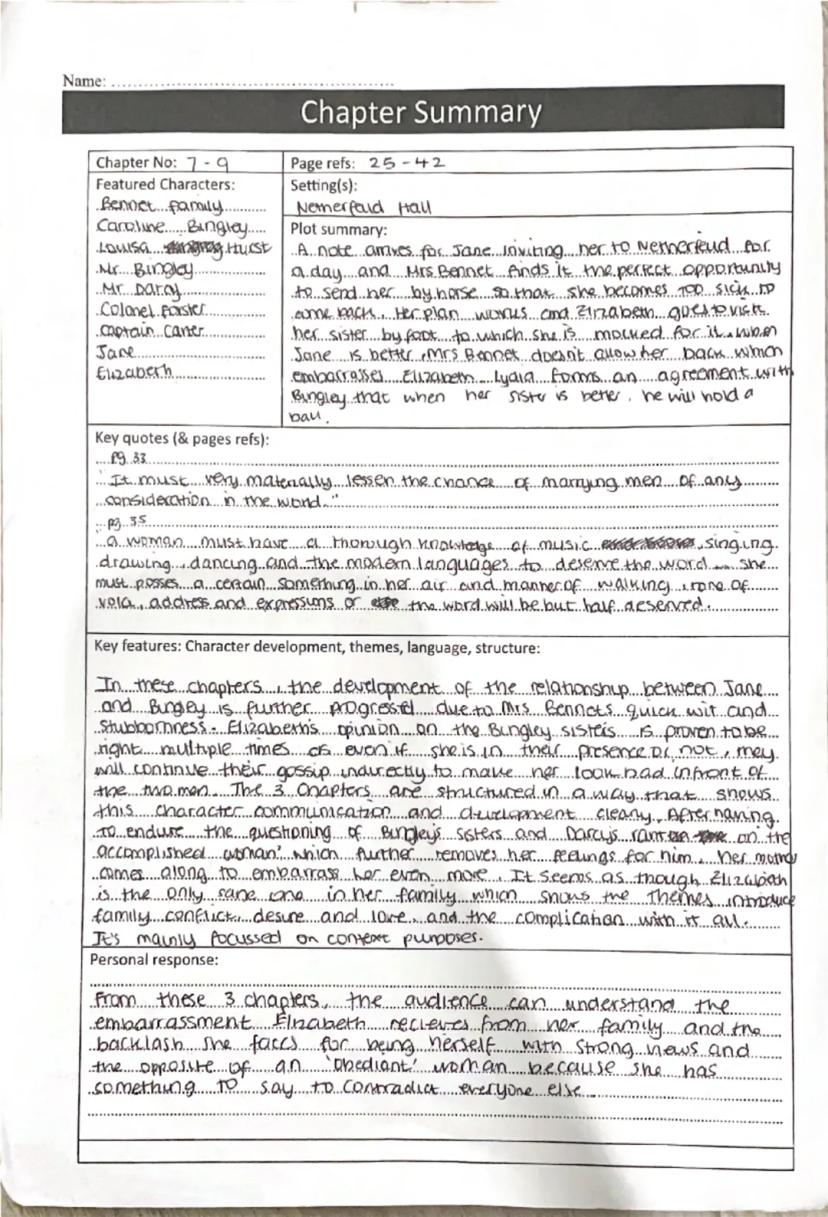 Name:
Chapter Summary
Chapter No: 7 - 9
Page refs: 25 - 42
Featured Characters:
Bennet family
Caroline Bingley
Louisa Hurst
Mr Bingley
Mr Darcy
Colonel forster
Captain Carter
Jane
Elizabeth
Setting(s):
Netherfeild Hall
Plot summary:
A note arrives for Jane inviting her to Netherfeild for
a day and Mrs Bennet finds it the perfect opportunity
to send her by horse so that she becomes too sick to
come back. Her plan works and Elizabeth goes to visit
her sister by foot to which she is mocked for it. when
Jane is better, Mrs Bennet doesn't allow her back which
embarrasses Elizabeth. Lydia forms an agreement with
Bingley that when her sister is better, he will hold a
ball.
Key quotes (& pages refs):
pg 33
"It must very materially lessen the chance of marrying men of any
consideration in the world."
pg 35
a woman must have a thorough knowledge of music, singing,
drawing, dancing and the modern languages to deserve the word ... she
must posses a certain something in her air and manner of walking, tone of
address and expressions or the word will be but half deserved.
Key features: Character development, themes, language, structure:
In these chapters, the development of the relationship between Jane
and Bingley is further progressed due to Mrs Bennets quick wit and
stubbornness. Elizabeth's opinion on the Bingley sisters is proven to be
right multiple times as even if she is in their presence or not, they
will continue their gossip indirectly to make her look bad infront of
the two men. The 3 Chapters are structured in a way that shows
this character communication and development clearly. After having
to endure the questioning of Bingley's sisters and Darcy's rant on the
'accomplished woman' which further removes her feelings for him, her mother
comes along to embarrass her even more. It seems as though Elizabeth
is the only sane one in her family which shows the Themes introduce
family conflict, desire and love, and the complication with it all.
It's mainly focussed on context purposes.
Personal response:
From these 3 chapters, the audience can understand the
embarrassment Elizabeth recieves from her family and the
backlash she faces for being herself with strong views and
the opposite of an 'obediant' woman because she has
something to say to contradict everyone else.